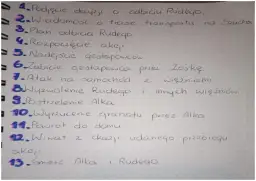 1. Podjęcie decyzji o odbiciu Rudego.
2. Wiadomość o trasie transportu na
3. Plan odbicia Rudego
4. Rozpoczęcie akcji
5. Nadejście gestapowców
6. Zabicie gestapowca przez Zośkę
7. Atak na samochód z więźniami
8. Uwolnienie Rudego i innych więźniów
9. Postrzelenie Alka
10. Wyrzucenie granatu przez Alka
11. Powrót do domu
12. W nas z okazji udanego przebiegu
akcji.
13. Śmierć Alka i Rudego.